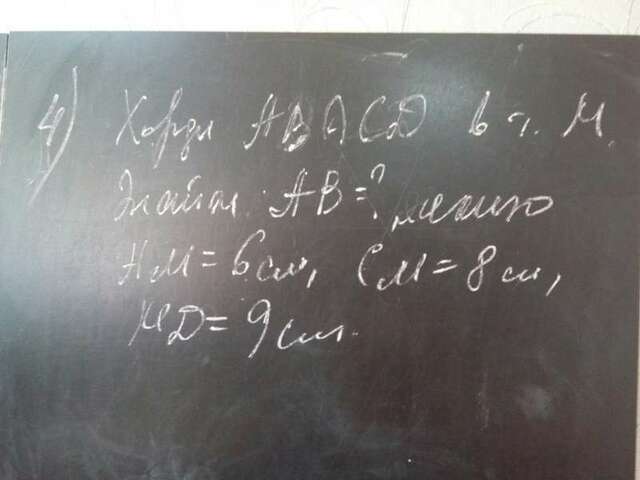 4) Хорды AB ∩ CD в т. M.
Найти AB = ?, если
AM = 6 см, CM = 8 см,
MD = 9 см.